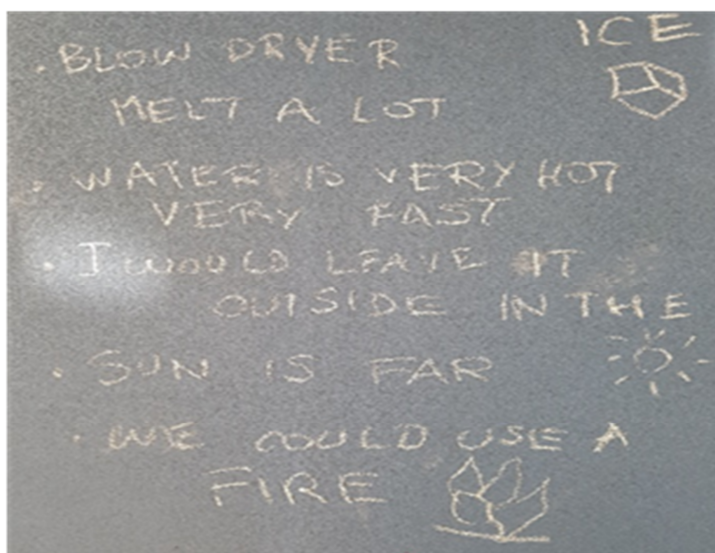 ICE
. BLOW DRYER
MELT A LOT
. WATER IS VERY HOT
VERY FAST
. I WOULD LEAVE IT
OUTSIDE IN THE
. SUN IS FAR
. WE COULD USE A
FIRE